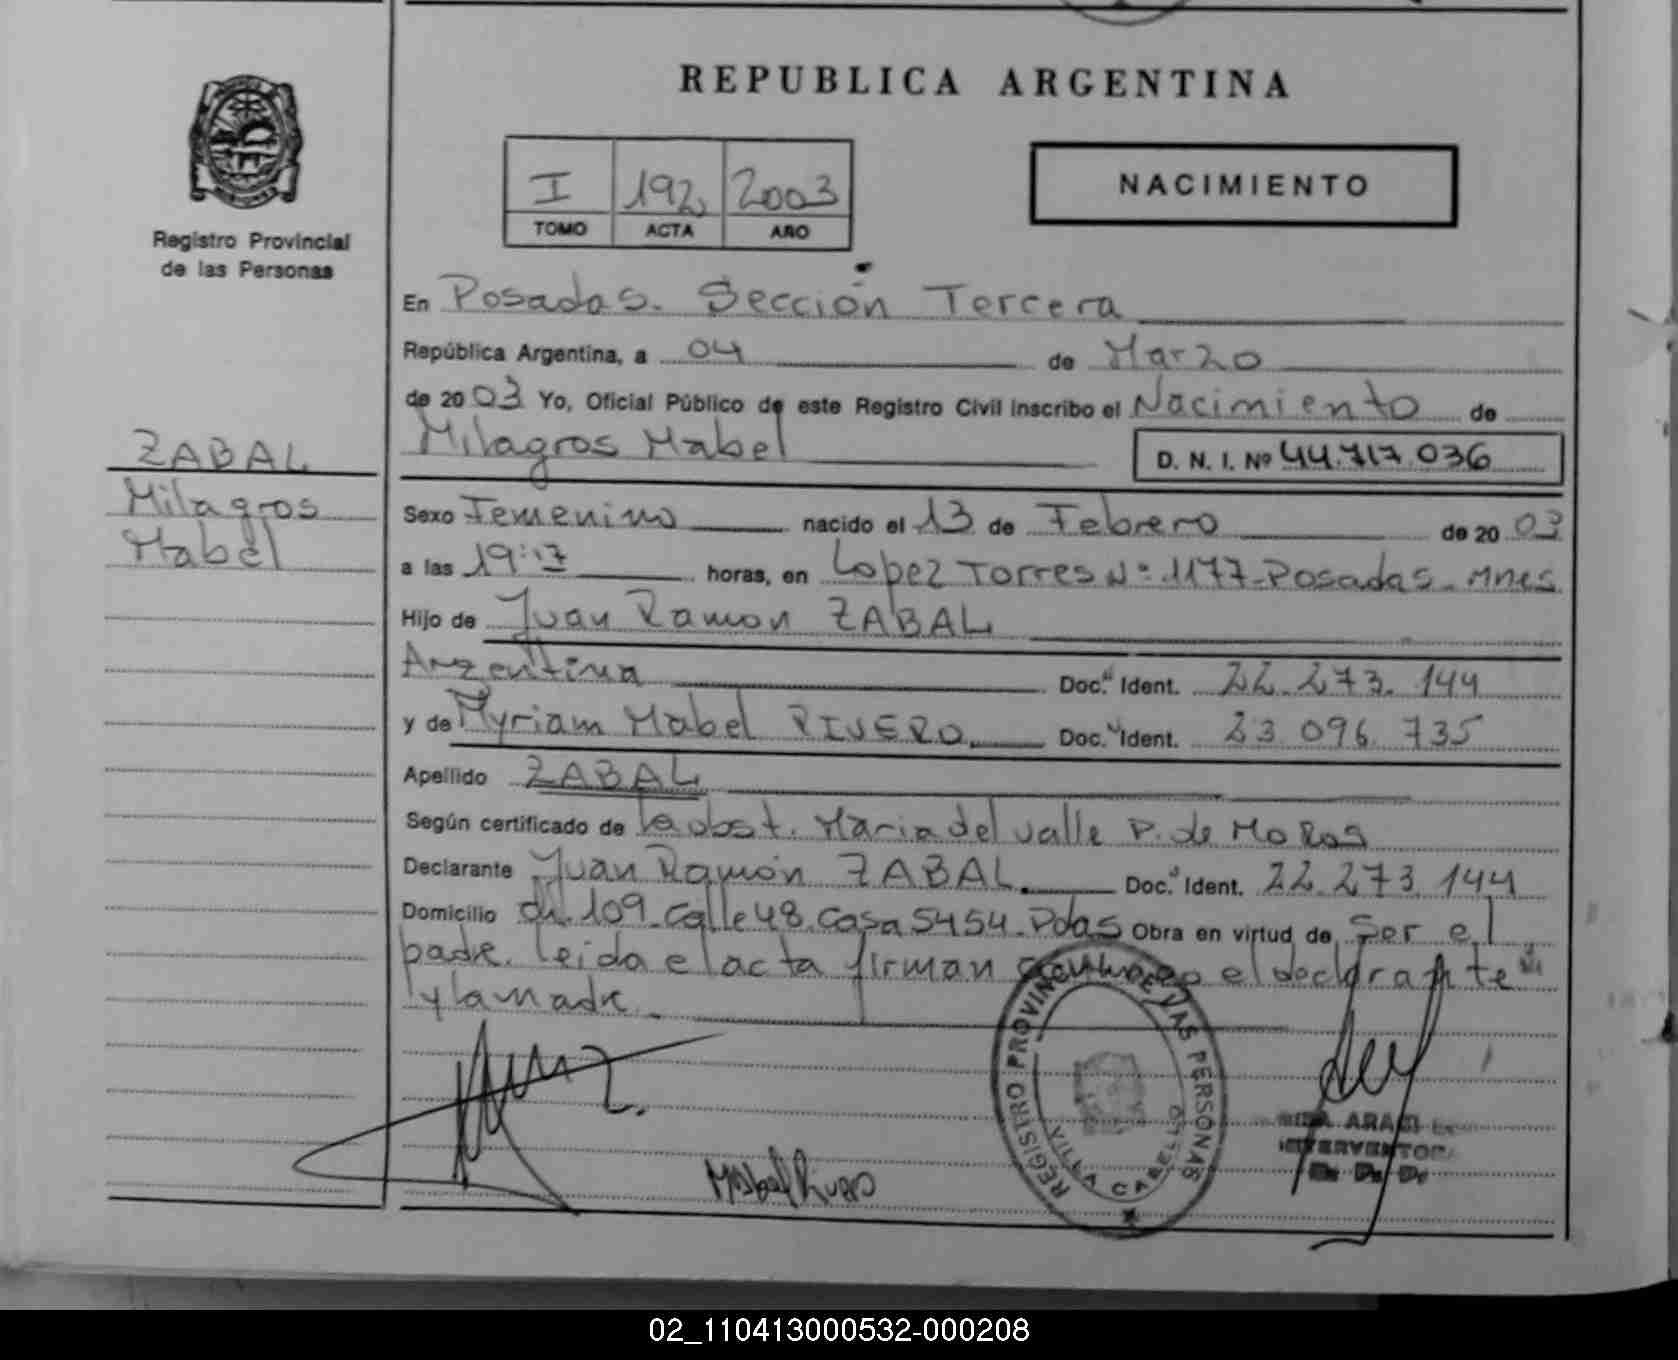 REPUBLICA ARGENTINA
I 192 2003
TOMO ACTA AÑO
NACIMIENTO
Registro Provincial
de las Personas
ZABAL
Milagros
Mabel
En Posadas. Sección Tercera
República Argentina, a 04 de Marzo
de 2003 Yo, Oficial Público de este Registro Civil inscribo el Nacimiento de
Milagros Mabel D. N. I. Nº 44.717.036
Sexo Femenino nacido el 13 de Febrero de 2003
a las 19:17 horas, en Lopez Torres Nº 1177-Posadas-Mnes.
Hijo de Juan Ramon ZABAL
Argentina Doc. Ident. 22.273.144
y de Myriam Mabel RIVERO Doc. Ident. 23.096.735
Apellido ZABAL
Según certificado de la obst. Maria del valle P. de
Declarante Juan Ramón ZABAL. Doc. Ident. 22.273.144
Domicilio ch. 109-Calle 48-Casa 5454-Pdas Obra en virtud de Ser el
padre. leida el acta firman el declarante
y la madre.
Mabel Rivero
REGISTRO PROVINCIAL DE LAS PERSONAS
VILLA CABELLO
INTERVENTORA
02_110413000532-000208